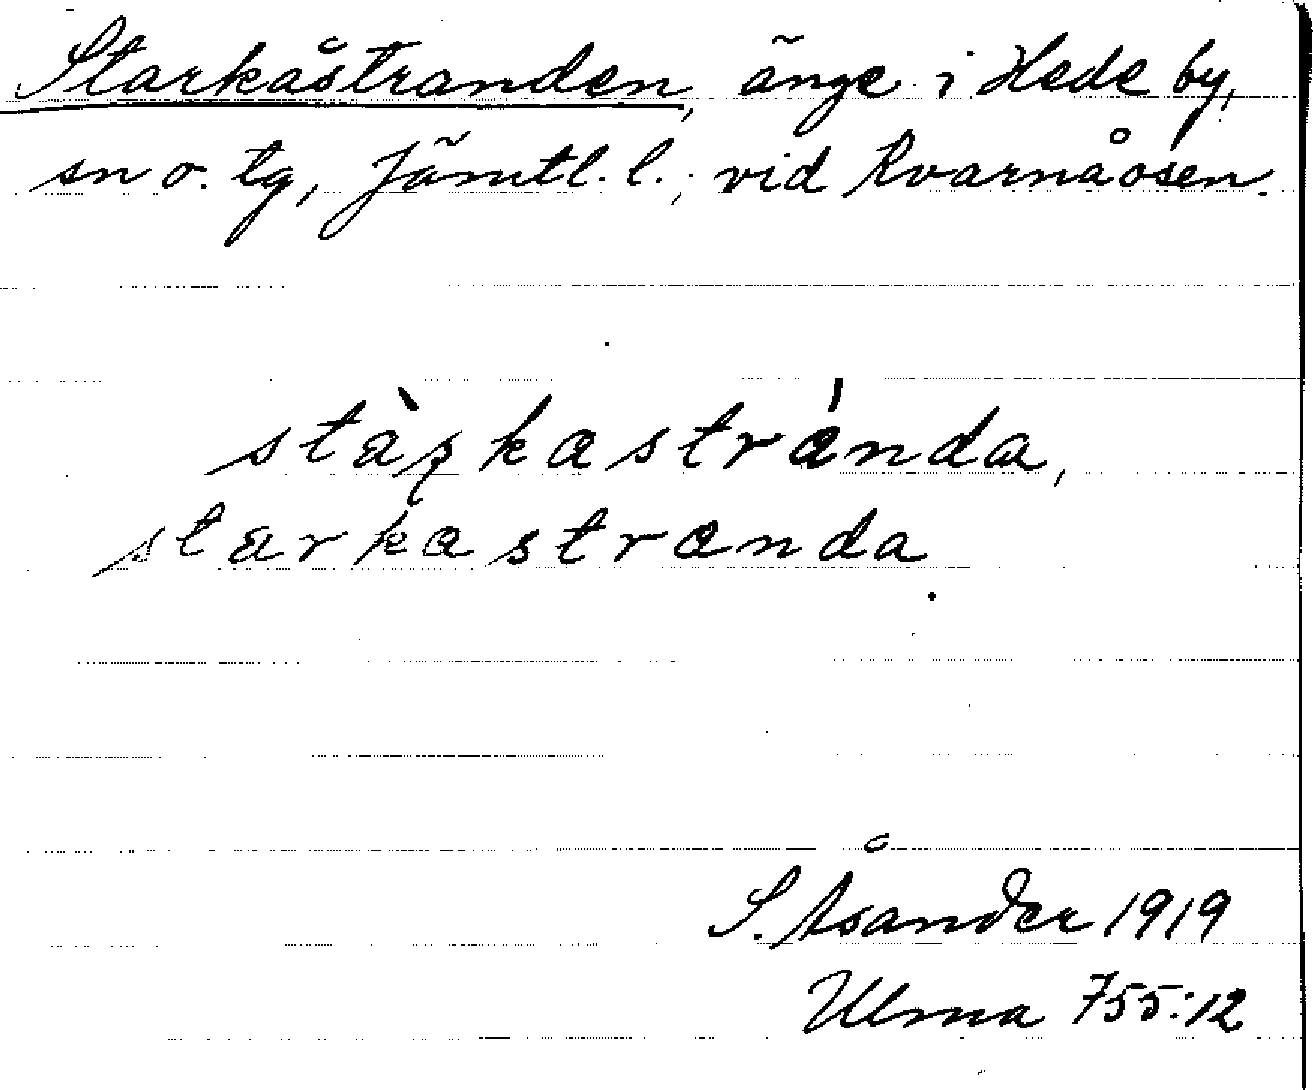 Starkåstranden, änge i Hede by,
sn o. tg, Jämtl. l.; vid Kvarnåosen.
stàr̨kastránda,
starkastranda.
S. Åsander 1919
Ulma 755:12